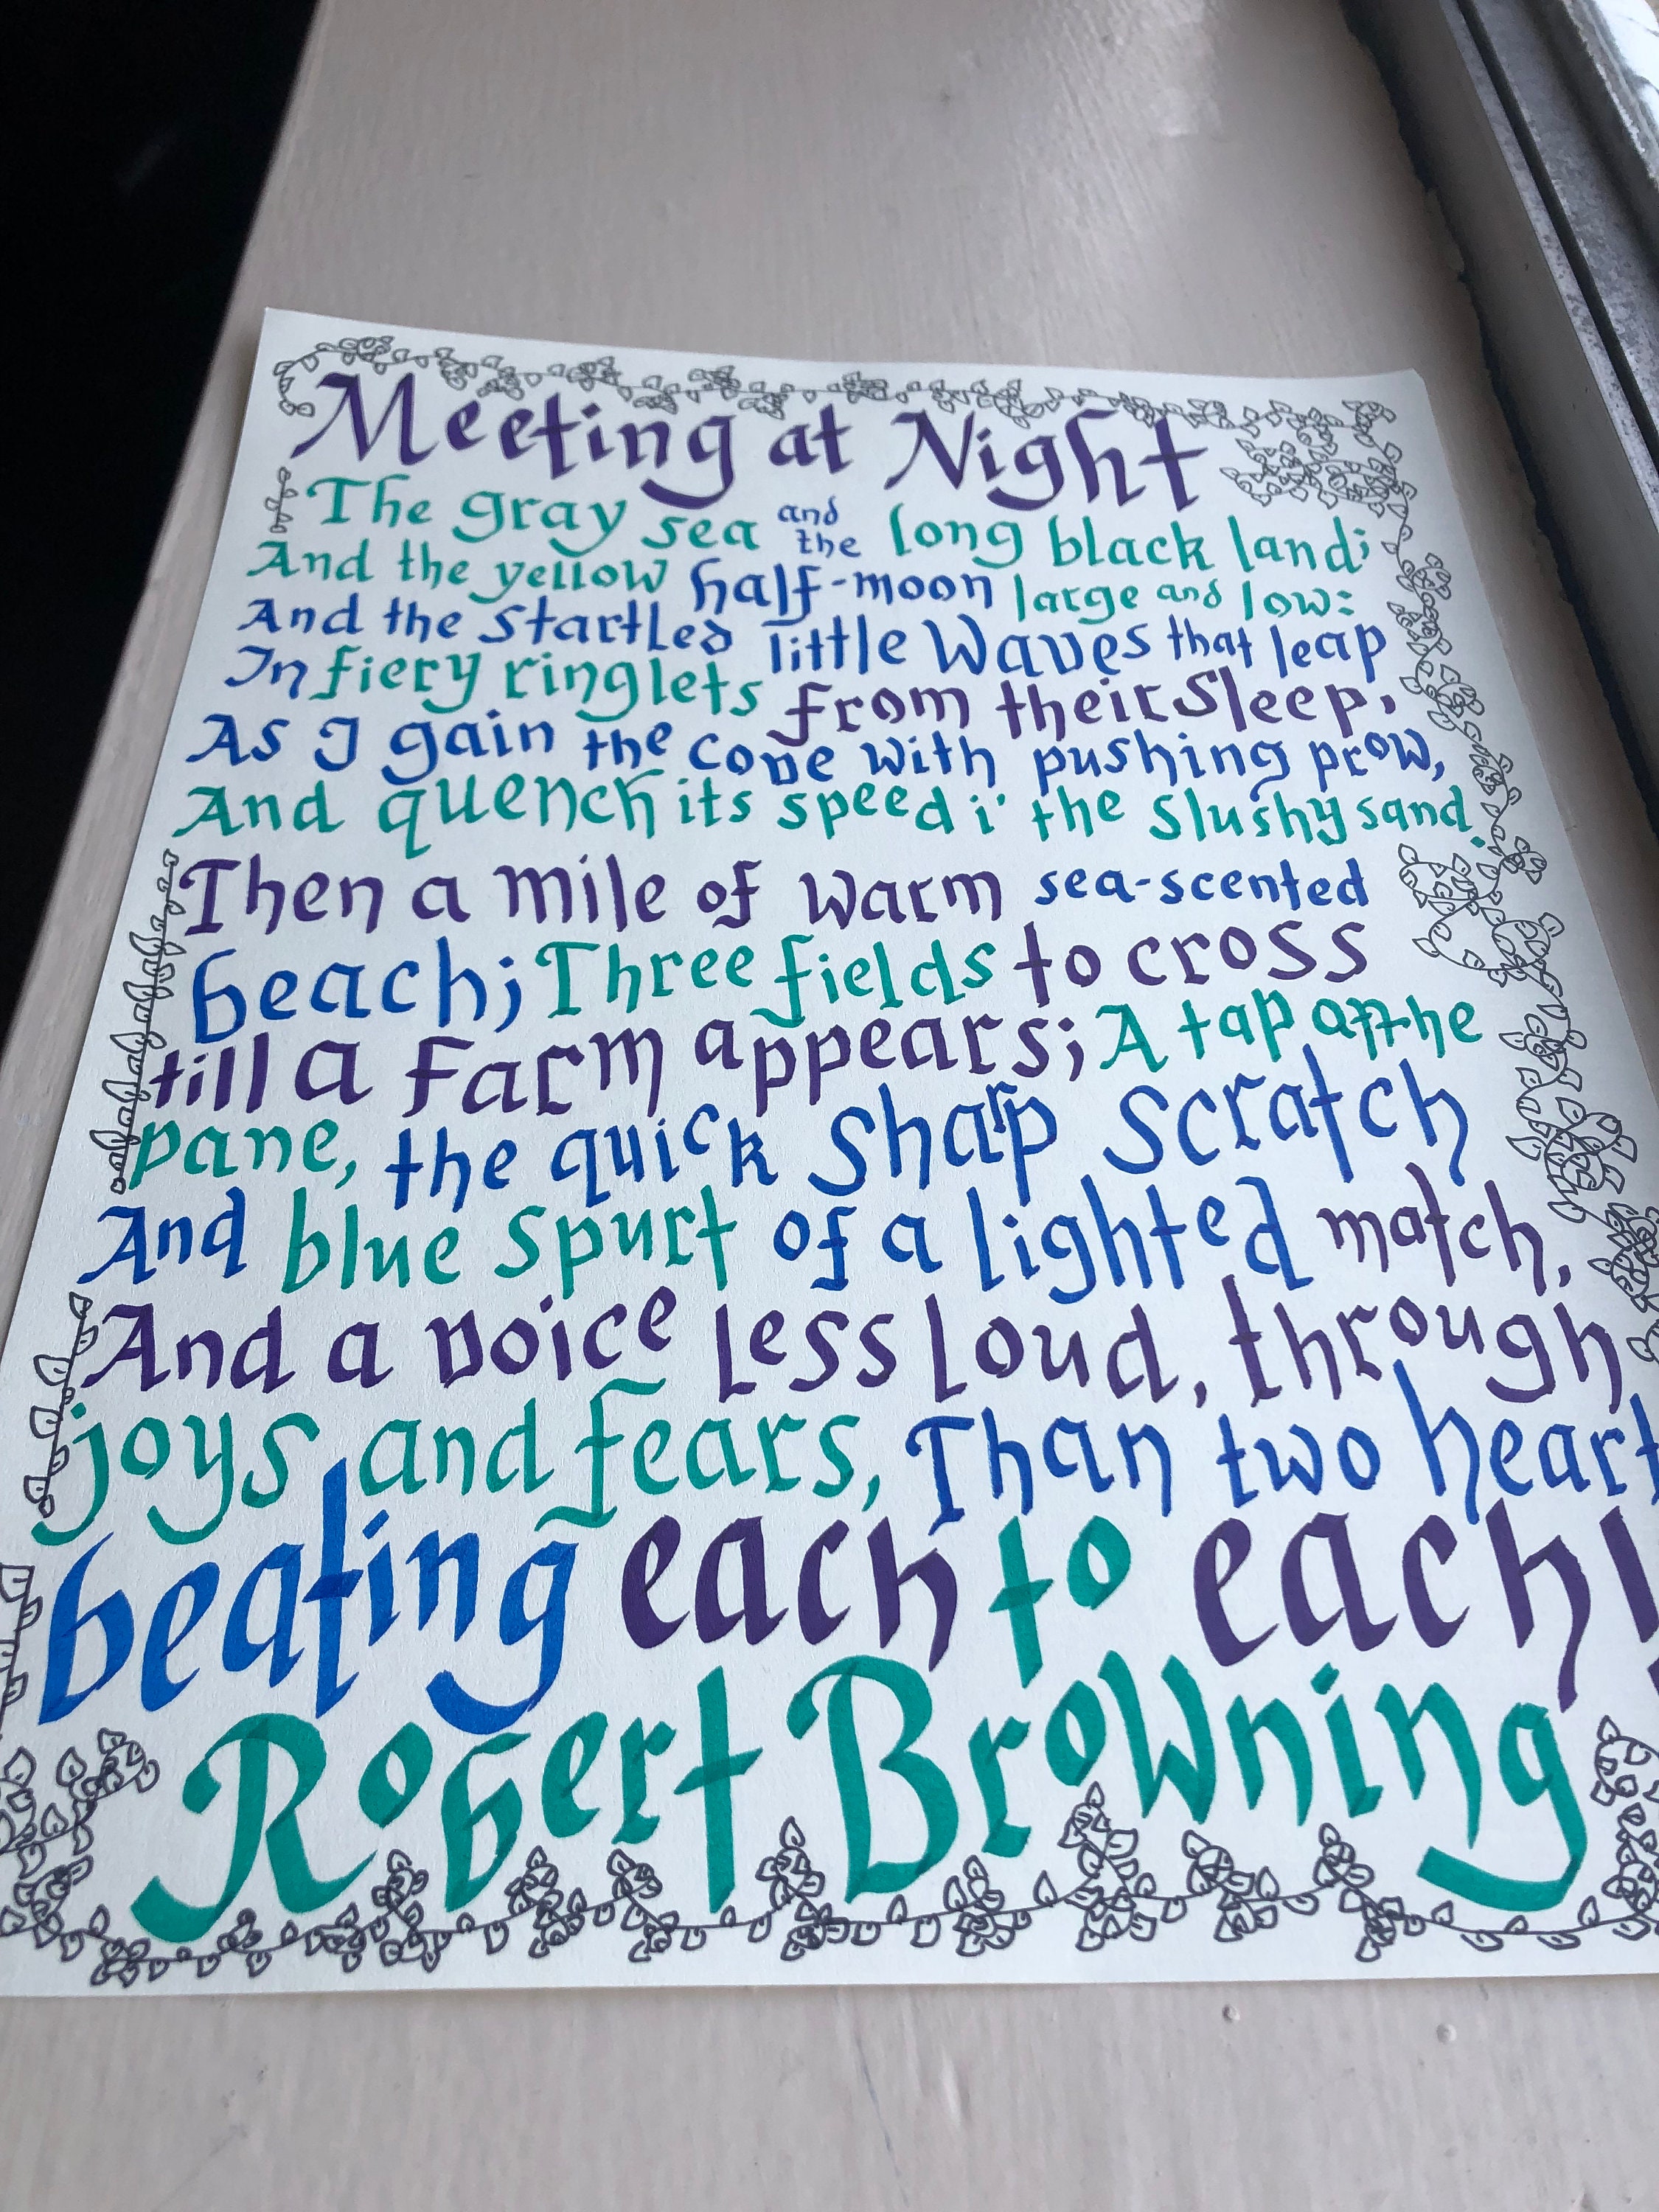 Meeting at Night
The gray sea and the long black land;
And the yellow half-moon large and low:
And the startled little Waves that leap
In fiery ringlets from their Sleep,
As I gain the cove with pushing prow,
And quench its speed i' the slushy sand.
Then a mile of warm sea-scented
beach; Three fields to cross
till a Farm appears; A tap on the
pane, the quick Sharp Scratch
And blue Spurt of a lighted match,
And a voice less loud, through
joys and fears, Than two heart
beating each to each!
Robert Browning